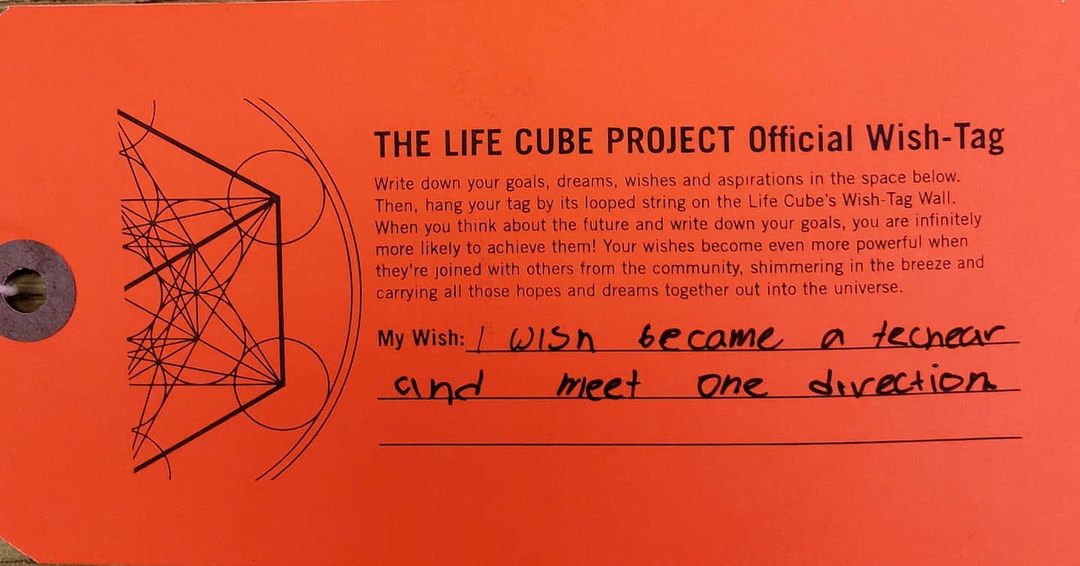 THE LIFE CUBE PROJECT Official Wish-Tag
Write down your goals, dreams, wishes and aspirations in the space below.
Then, hang your tag by its looped string on the Life Cube's Wish-Tag Wall.
When you think about the future and write down your goals, you are infinitely
more likely to achieve them! Your wishes become even more powerful when
they're joined with others from the community, shimmering in the breeze and
carrying all those hopes and dreams together out into the universe.
My Wish: I wish became a techear
and meet one direction